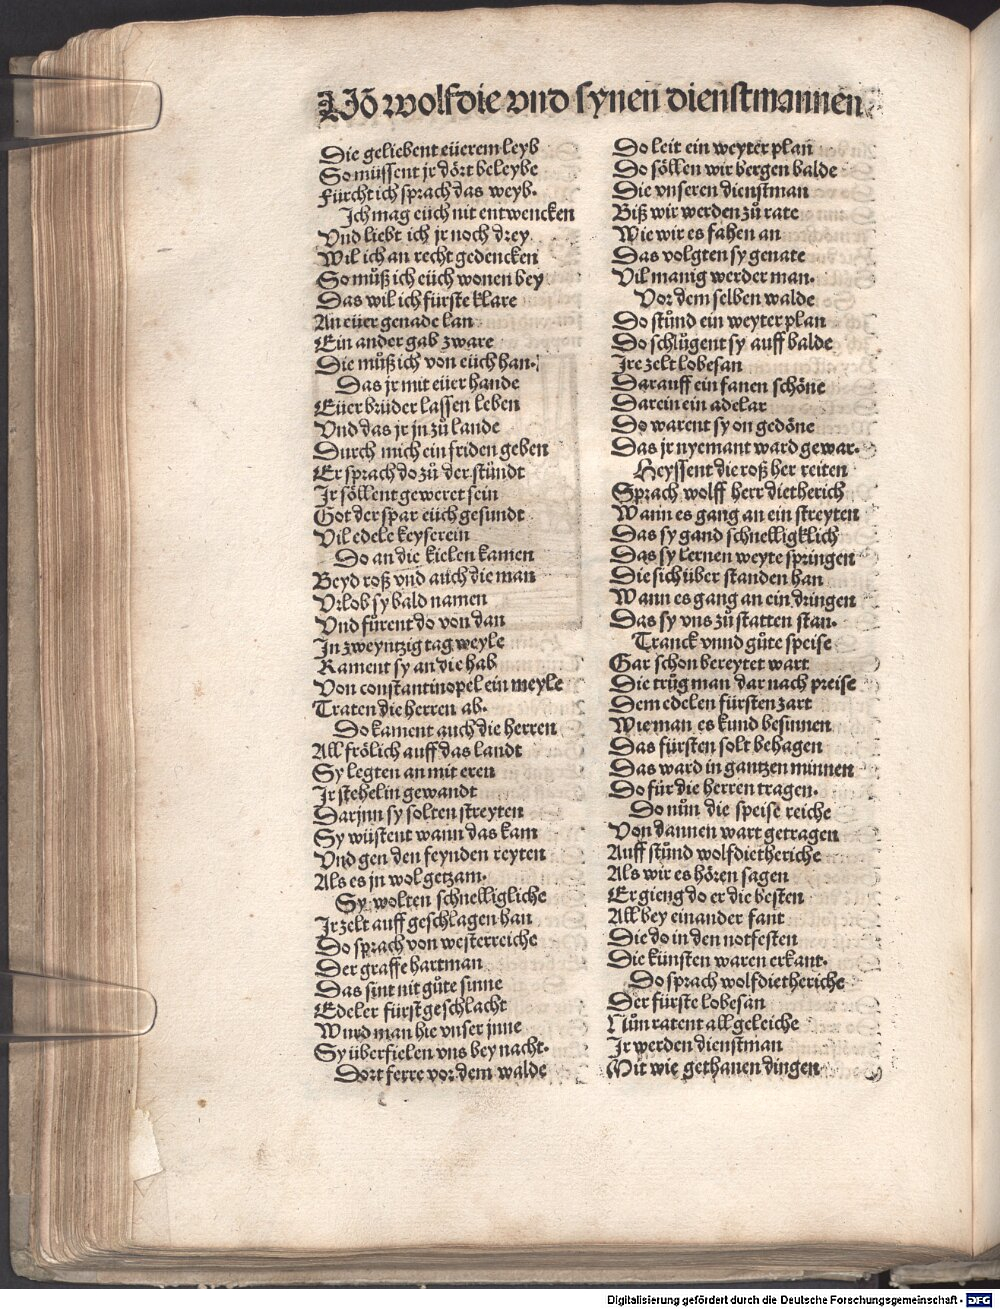 Uō wolfdie vnd synen dienstmannen
Die geliebent eüerem leyb
So müssent jr dört beleybe
Fürcht ich sprach das weyb.
Jch mag eüch nit entwencken
Vnd liebt ich jr noch drey
Wil ich an recht gedencken
So můß ich eüch wonen bey
Das wil ich fürste klare
An eüer genade lan
Ein ander gab zware
Die můß ich von eüch han.
Das jr mit eüer hande
Eüer brüder lassen leben
Vnd das jr jn zů lande
Durch mich ein friden geben
Er sprach do zů der stůndt
Jr söllent geweret sein
Got der spar eüch gesundt
Vil edele keyserein
Do an die kielen kamen
Beyd roß vnd auch die man
Vrlob sy bald namen
Vnd fůrent do von dan
Jn zweyntzig tag weyle
Kament sy an die hab
Von constantinopel ein meyle
Traten die herren ab.
Do kament auch die herren
All frölich auff das landt
Sy legten an mit eren
Jr stehelin gewandt
Darjnn sy solten streyten
Sy wüstent wann das kam
Vnd gen den feynden reyten
Als es jn wol getzam.
Sy wolten schnelligliche
Jr zelt auff geschlagen han
Do sprach von westerreiche
Der graffe hartman
Das sint nit gůte sinne
Edeler fürst geschlacht
Wurd man hie vnser jnne
Sy überfielen vns bey nacht.
Dort ferre vor dem walde
Do leit ein weyter plan
Do söllen wir bergen balde
Die vnseren dienstman
Biß wir werden zů rate
Wie wir es fahen an
Das volgten sy genate
Vil manig werder man.
Vor dem selben walde
Do stůnd ein weyter plan
Do schlůgent sy auff balde
Jre zelt lobesan
Darauff ein fanen schöne
Darein ein adelar
Do warent sy on gedöne
Das jr nyemant ward gewar.
Heyssent die roß her reiten
Sprach wolff herr dietherich
Wann es gang an ein streyten
Das sy gand schnelligklich
Das sy lernen weyte springen
Die sich über standen han
Wann es gang an ein dringen
Das sy vns zů statten stan.
Tranck vnnd gůte speise
Gar schon bereytet wart
Die trůg man dar nach preise
Dem edelen fürsten zart
Wie man es kund besinnen
Das fürsten solt behagen
Das ward in gantzen minnen
Do für die herren tragen.
Do nůn die speise reiche
Von dannen wart getragen
Auff stůnd wolfdietheriche
Als wir es hören sagen
Er gieng do er die besten
All bey einander fant
Die do in den notfesten
Die künsten waren erkant.
Do sprach wolfdietheriche
Der fürste lobesan
Nůn ratent all geleiche
Jr werden dienstman
Mit wie gethanen dingen
Digitalisierung gefördert durch die Deutsche Forschungsgemeinschaft - DFG